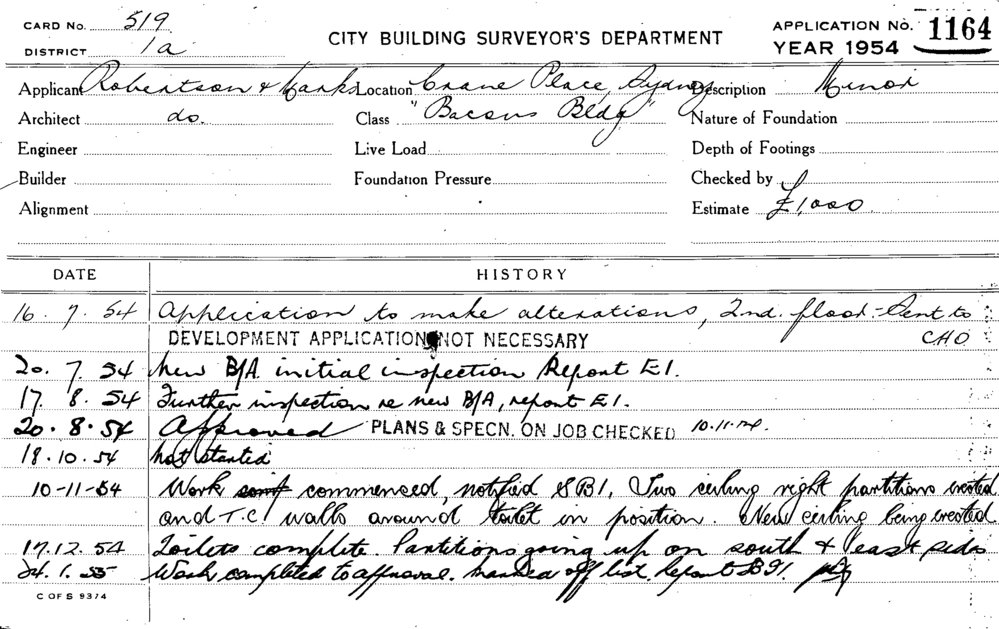 CARD No. 519
DISTRICT 1a
CITY BUILDING SURVEYOR'S DEPARTMENT
APPLICATION No. 1164
YEAR 1954
Applicant Robertson & Marks Location Crane Place, Sydney Description Minor
Architect do. Class "Bacons Bldg" Nature of Foundation
Engineer Live Load Depth of Footings
Builder Foundation Pressure Checked by
Alignment Estimate £1,000
DATE HISTORY
16. 7. 54 Application to make alterations, 2nd. floor - Sent to
DEVELOPMENT APPLICATION NOT NECESSARY CHO
20. 7. 54 New B/A initial inspection Report E1.
17. 8. 54 Further inspection re new B/A, report E1.
20. 8. 54 Approved PLANS & SPECN. ON JOB CHECKED 10.11.54.
18.10.54 Not started
10-11-54 Work commenced, notified SB1, Two ceiling hight partitions erected
and T.C. walls around toilet in position. New ceiling being erected
17.12.54 Toilets complete. Partitions going up on south & east sides
24.1.55 Work completed to approval. Marked off list. Report B91.
C OF S 9374